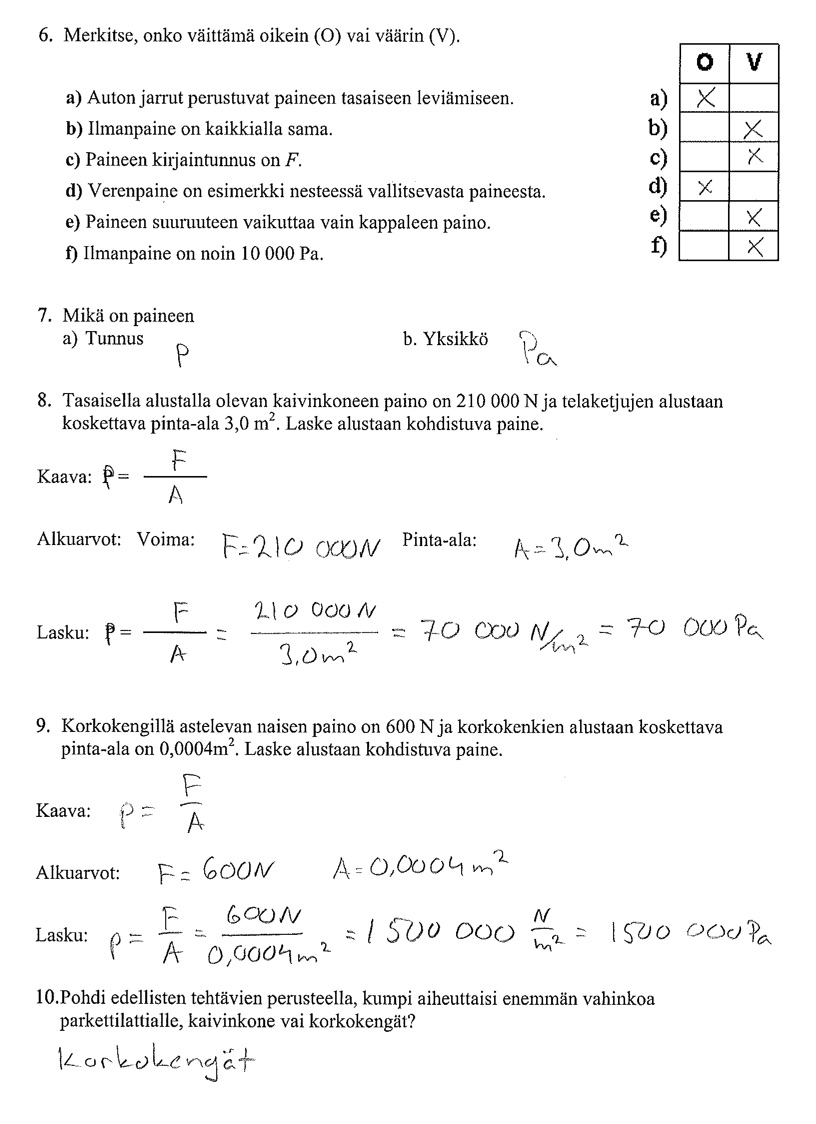 6. Merkitse, onko väittämä oikein (O) vai väärin (V).
O V
a) Auton jarrut perustuvat paineen tasaiseen leviämiseen. a) X
b) Ilmanpaine on kaikkialla sama. b) X
c) Paineen kirjaintunnus on F. c) X
d) Verenpaine on esimerkki nesteessä vallitsevasta paineesta. d) X
e) Paineen suuruuteen vaikuttaa vain kappaleen paino. e) X
f) Ilmanpaine on noin 10 000 Pa. f) X
7. Mikä on paineen
a) Tunnus p b. Yksikkö Pa
8. Tasaisella alustalla olevan kaivinkoneen paino on 210 000 N ja telaketjujen alustaan
koskettava pinta-ala 3,0 m². Laske alustaan kohdistuva paine.
Kaava: p = F / A
Alkuarvot: Voima: F = 210 000N Pinta-ala: A = 3,0m²
Lasku: p = F / A = 210 000N / 3,0m² = 70 000 N/m² = 70 000 Pa
9. Korkokengillä astelevan naisen paino on 600 N ja korkokenkien alustaan koskettava
pinta-ala on 0,0004m². Laske alustaan kohdistuva paine.
Kaava: p = F / A
Alkuarvot: F = 600N A = 0,0004m²
Lasku: p = F / A = 600N / 0,0004m² = 1 500 000 N/m² = 1500 000Pa
10.Pohdi edellisten tehtävien perusteella, kumpi aiheuttaisi enemmän vahinkoa
parkettilattialle, kaivinkone vai korkokengät?
Korkokengät